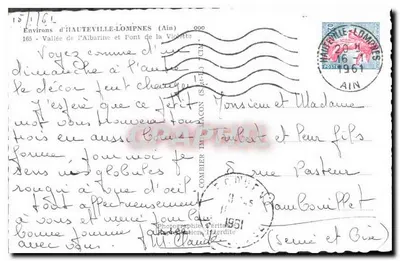 15/1/61
Environs d'HAUTEVILLE-LOMPNES (Ain)
165 - Vallée de l'Albarine et Pont de la
Voyez comme d'un
dimanche à l'autre
le décor peut changer!
J'espère que ce petit
mot vous trouvera tous
trois en aussi bonne
forme, pour moi je
sens mes globules
rougir à vue d'oeil.
Tout affectueusement
à vous et
bonne journée passée
avec vous. M. Claude
COMBIER IMP. MACON
Photographie Véritable
Interdite
HAUTEVILLE-LOMPNES
20 H
16 - 1
1961
AIN
Monsieur et Madame
et leur fils
rue Pasteur
Rambouillet
(Seine et Oise)
1961